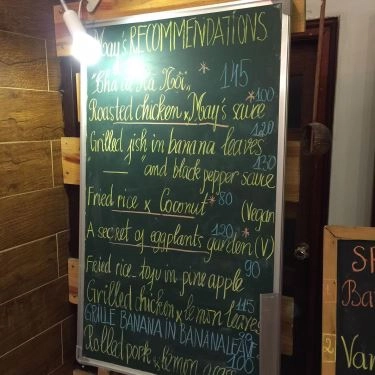 May's RECOMMENDATIONS
"Chả cá Hà Nội" * 145
Roasted chicken x May's sauce *100
Grilled fish in banana leaves 120
—— "and black pepper sauce 130
Fried rice x Coconut *80 (Vegan
A secret of eggplants garden (V) 120*
Fried rice-tofu in pineapple 90
Grilled chicken x lemon leaves 115
GRILLE BANANA IN BANANA LEAVE
Rolled pork x lemon 100
SP
Ba
2 Van